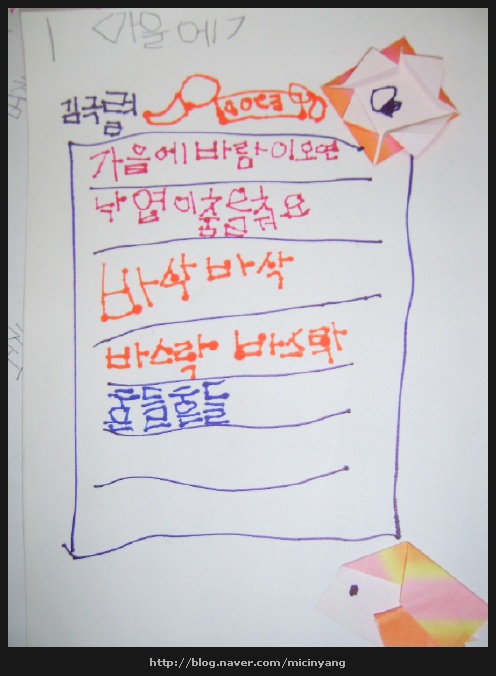 <가을에>
가을에 바람이오면
낙엽이춤을춰요
바삭 바삭
바스락 바스락
흔들흔들
http://blog.naver.com/micinyang